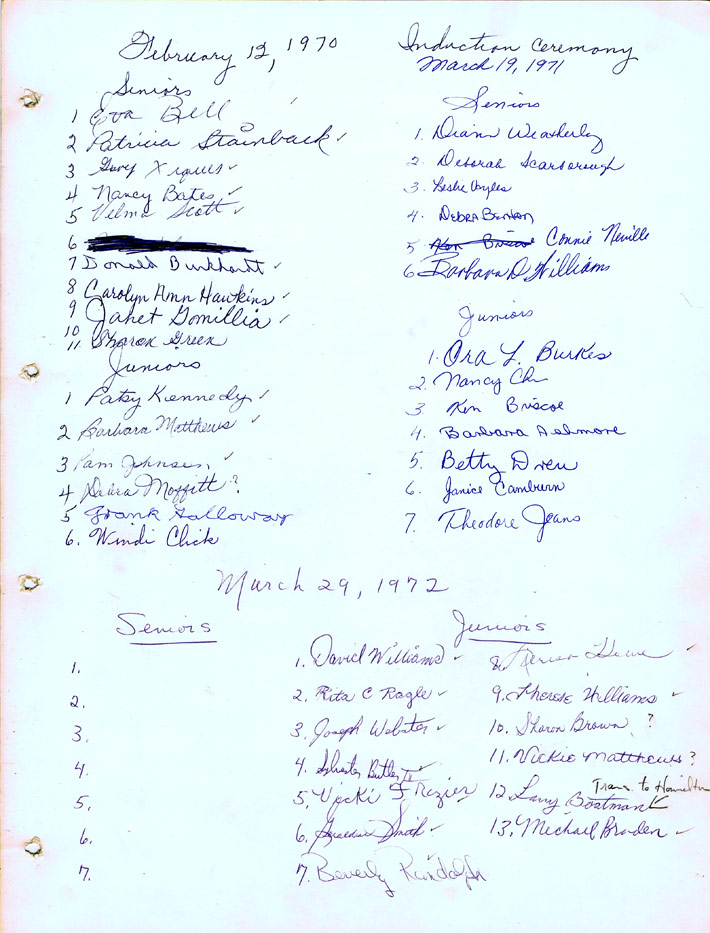 February 12, 1970
Seniors
1 Eva Bell
2 Patricia Stainback ✓
3 Gary Xiques ✓
4 Nancy Bates ✓
5 Velma Scott ✓
6
7 Donald Burkhardt ✓
8 Carolyn Ann Hawkins ✓
9 Janet Gomillia ✓
10
11 Sharon Green
Juniors
1 Patsy Kennedy ✓
2 Barbara Matthews ✓
3 Pam Johnson ✓
4 Debra Moffitt ?
5 Frank Galloway
6. Windi Click
Induction Ceremony
March 19, 1971
Seniors
1. Diann Weatherley
2. Deborah Scarborough
3. Leslie
4. Debra Benton
5 Ken Briscoe Connie Neville
6 Barbara D. Williams
Juniors
1. Ora L. Burkes
2. Nancy
3 Ken Briscoe
4. Barbara Ashmore
5. Betty Drew
6. Janice Camburn
7. Theodore Jeans
March 29, 1972
Seniors
1.
2.
3.
4.
5.
6.
7.
Juniors
1. David Williams ✓
2. Rita C Ragle ✓
3. Joseph Webster ✓
4. Sylvester Butler ✓
5. Vicki Frazier ✓
6. Smith ✓
7. Beverly Randolph
8. ✓
9. Therese Williams ✓
10. Sharon Brown ?
11. Vickie Matthews ?
Trans. to Hamilton
12 Larry Boatman
13. Michael Braden ✓